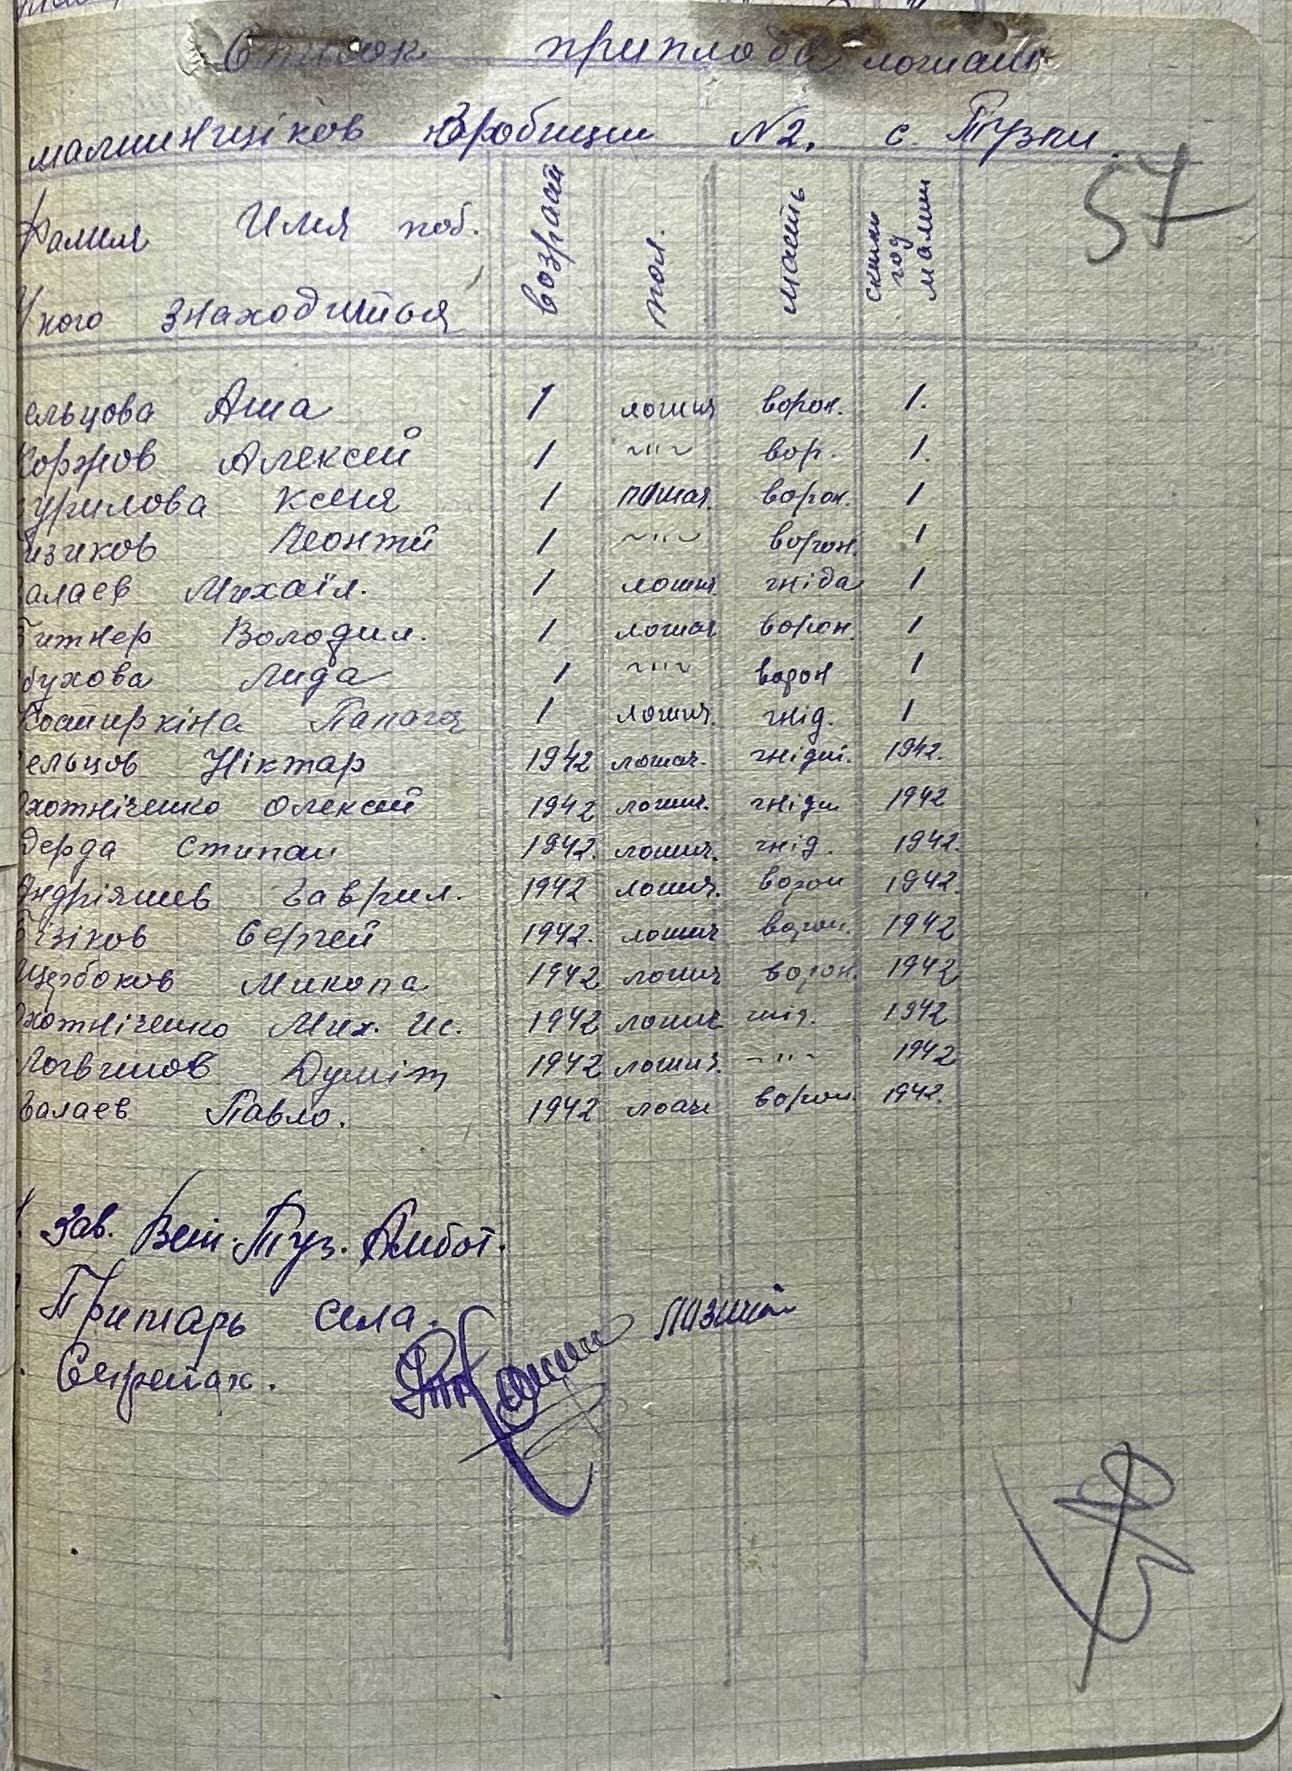 Список приплода лошань
малшинщіков Виробниции №2. с. Тузли.
57
Фамиля Имя поб.
У кого знаходиться
возраст
пол.
масть
скілки год малши
ельцова Аша 1 лошия ворон. 1.
Коржов Алексей 1 -"- вор. 1.
урилова Ксеня 1 лошая. ворон. 1
изиков Леонтй 1 -"- ворон. 1
алаев Михаїл. 1 лошия гніда 1
итнер Володил. 1 лошая ворон. 1
бухова Лида 1 -"- ворон 1
Коширкіна Палага 1 лошия. гнід. 1
ельцов Ніктар 1942 лошач. гнідий. 1942.
хотніченко Олексей 1942 лошич. гніди 1942
Дерда Стипан 1942. лошич. гнід. 1942.
Андріяшев Гаврил. 1942 лошич. ворон 1942.
ізіков Сергей 1942. лошич ворон. 1942
Щербоков Микола 1942 лошич ворон. 1942
хотніченко Мих. Ис. 1942 лошич гнід. 1942
Логвинов Думіт 1942 лошич. -"- 1942
алаев Павло. 1942 лоаш ворон. 1942.
Зав. Вет. Туз. Амбот.
Примарь села.
Секретах.